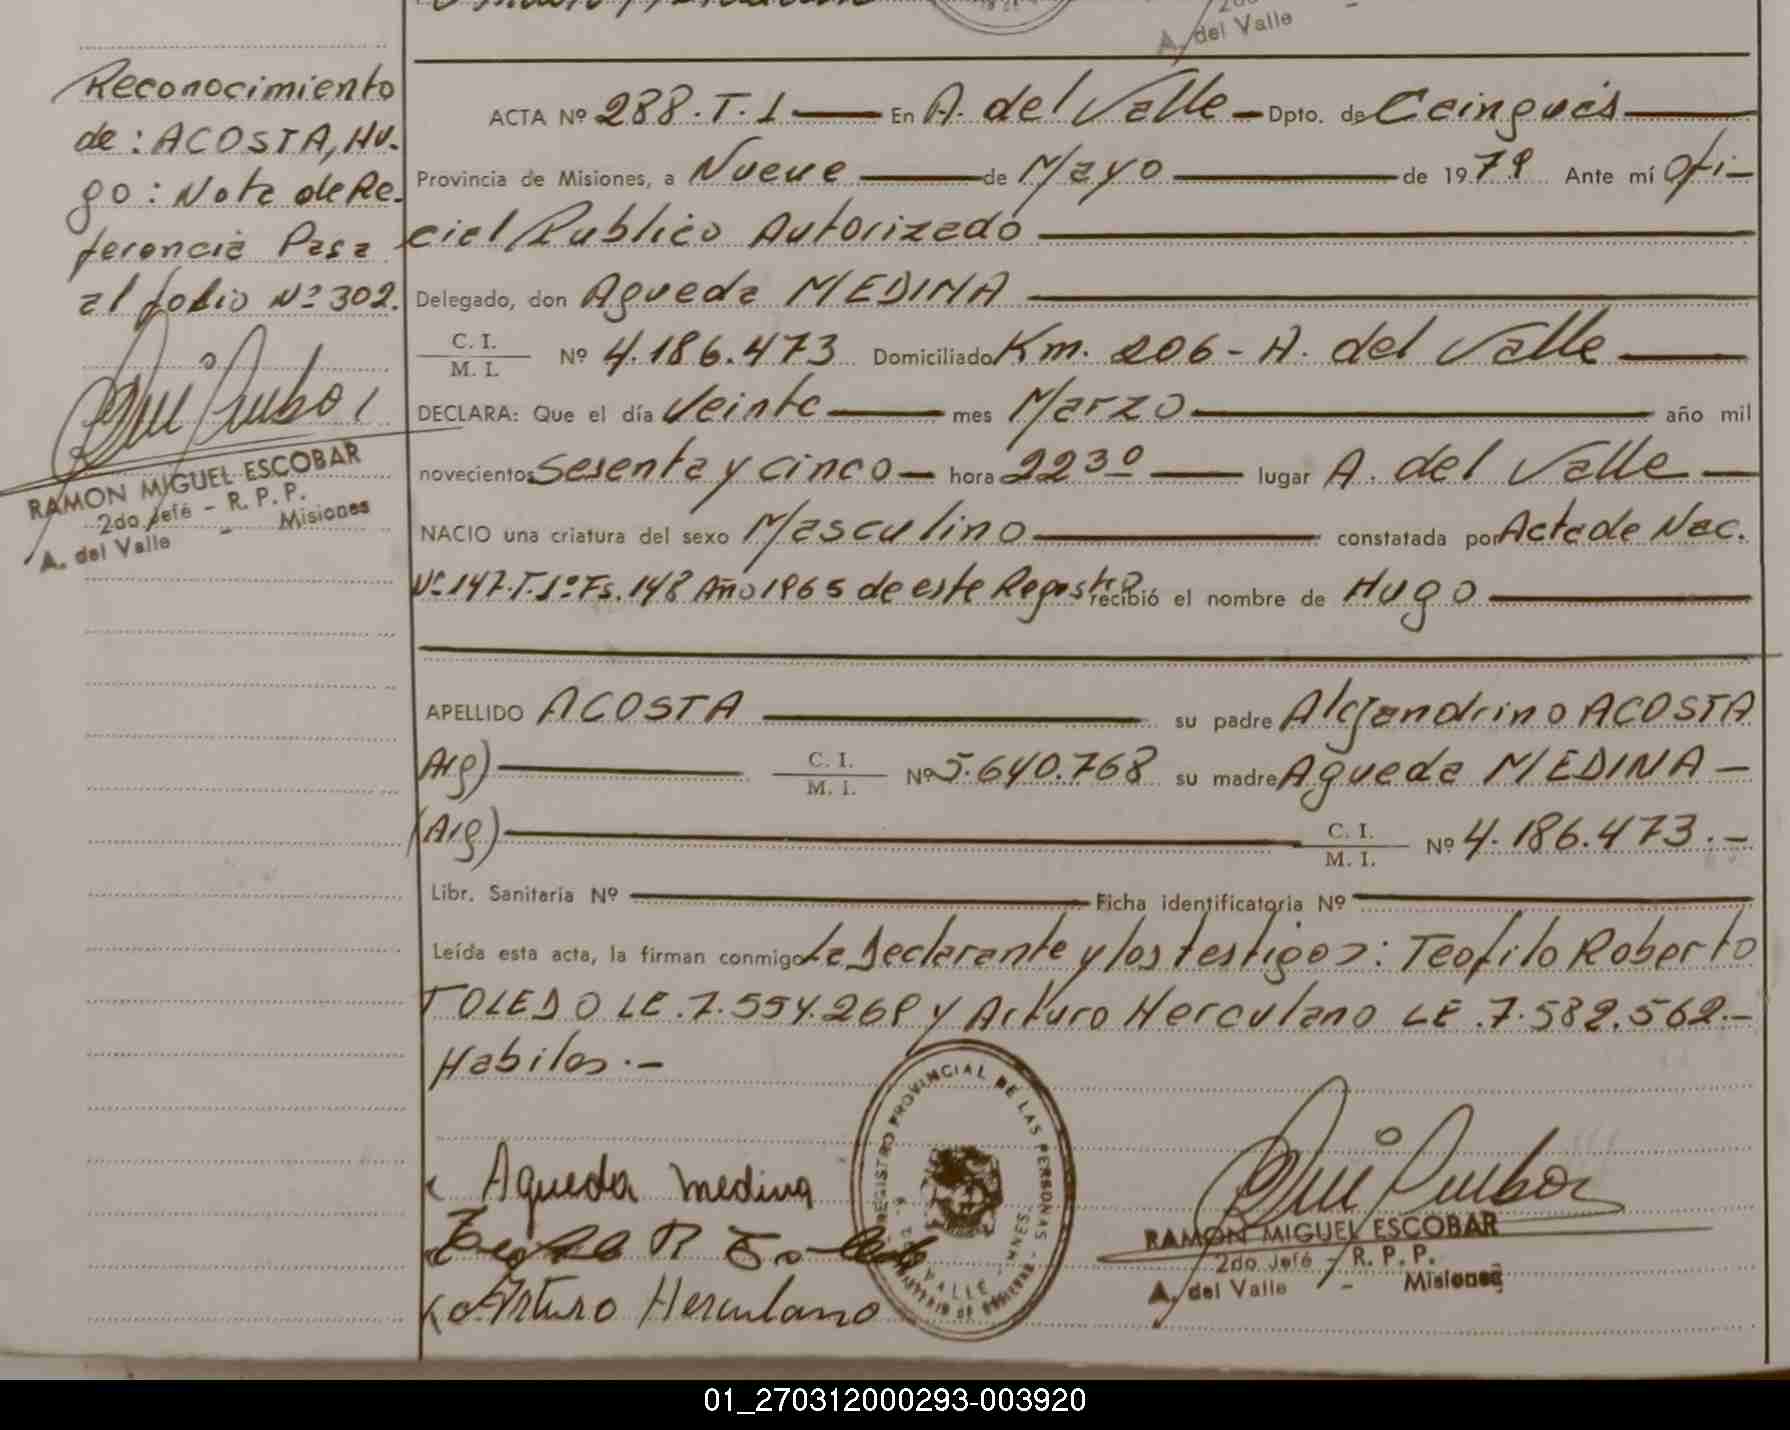 A. del Valle
Reconocimiento
de: ACOSTA, Hu-
go: Nota de Re-
ferencia Pasa
al folio Nº 302.
RAMON MIGUEL ESCOBAR
2do Jefé - R. P. P.
A. del Valle - Misiones
ACTA Nº 288.T.1 En A. del Valle - Dpto. de Cainguás
Provincia de Misiones, a Nueve de Mayo de 1979 Ante mí Ofi-
cial Publico Autorizado
Delegado, don Agueda MEDINA
C. I.
M. I. Nº 4.186.473 Domiciliado Km. 206 - A. del Valle
DECLARA: Que el día Veinte mes Marzo año mil
novecientos Sesenta y cinco - hora 22³⁰ lugar A. del Valle
NACIO una criatura del sexo Masculino constatada por Acta de Nac.
Nº 147.T.1º Fs. 148 Año 1965 de este Registro recibió el nombre de Hugo
APELLIDO ACOSTA su padre Alejandrino ACOSTA
Arg) C. I.
M. I. Nº 5.640.768 su madre Agueda MEDINA -
(Arg) C. I.
M. I. Nº 4.186.473.-
Libr. Sanitaria Nº Ficha identificatoria Nº
Leída esta acta, la firman conmigo La Declarante y los testigos: Teofilo Roberto
TOLEDO LE.7.554.269 y Arturo Herculano LE.7.582.562.-
Habiles.-
Agueda medina
Arturo Herculano
REGISTRO PROVINCIAL DE LAS PERSONAS
VALLE - MNES.
RAMON MIGUEL ESCOBAR
2do Jefé - R. P. P.
A. del Valle - Misiones
01_270312000293-003920